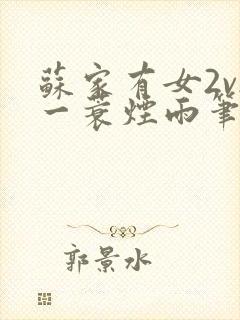 蘇家有女2v
一蓑煙雨筆
郭景水